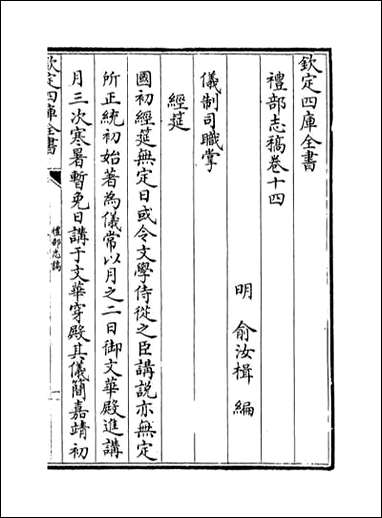 欽定四庫全書
禮部志稿卷十四
明 俞汝楫 編
儀制司職掌
經筵
國初經筵無定日或令文學侍從之臣講說亦無定
所正統初始著為儀常以月之二日御文華殿進講
月三次寒暑暫免日講于文華穿殿其儀簡嘉靖初
欽定四庫全書
禮部志稿
一